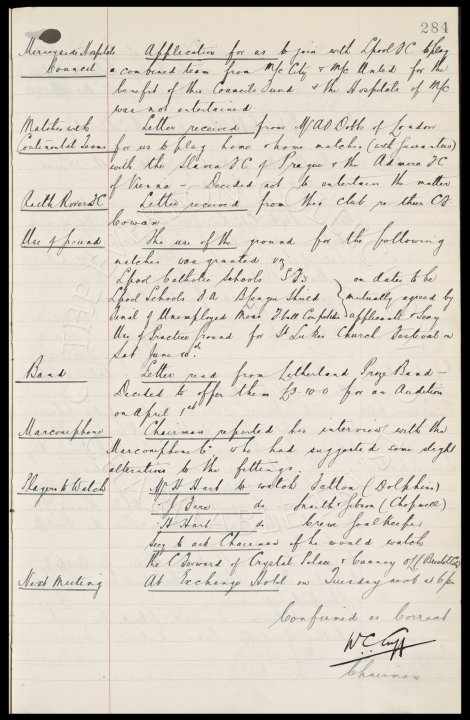 284
Merseyside Hospitals Council Application for us to join with Lpool FC & play
a combined team from M/c City & M/c United for the
benefit of this Councils Fund & the Hospitals of M/c
was not entertained
Matches with Continental Teams Letter received from Mr A D Dobbs of London
for us to play home & home matches (with guarantees)
with the Slavia FC of Prague & the Admira FC
of Vienna – Decided not to entertain the matter
Raith Rovers FC Letter received from this club re their CF
Cowan
Use of ground The use of the ground for the following
matches was granted viz
Lpool Catholic Schools S.F.s on dates to be
Lpool Schools F A League Shield mutually agreed by
Final of Unemployed Mens F'ball Competition applicants & Secy
Use of Practice ground for St Lukes Church Festival on
Sat June 10th
Band Letter read from Litherland Prize Band –
Decided to offer them £3-10-0 for an Audition
on April 1st
Marconiphone Chairman reported his interview with the
Marconiphone Co who had suggested some slight
alterations to the fittings.
Players to Watch Mr H Hart to watch Salton (Dolphins)
do Smith & Gibson (Chopwell)
H Hart do Crewe Goalkeeper
Secy to ask Chairman if he would watch
the C Forward of Crystal Palace & Canney O/L (Bristol City)
Next Meeting At Exchange Hotel on Tuesday next at 6 pm
Confirmed as Correct
W.C. Cuff
Chairman